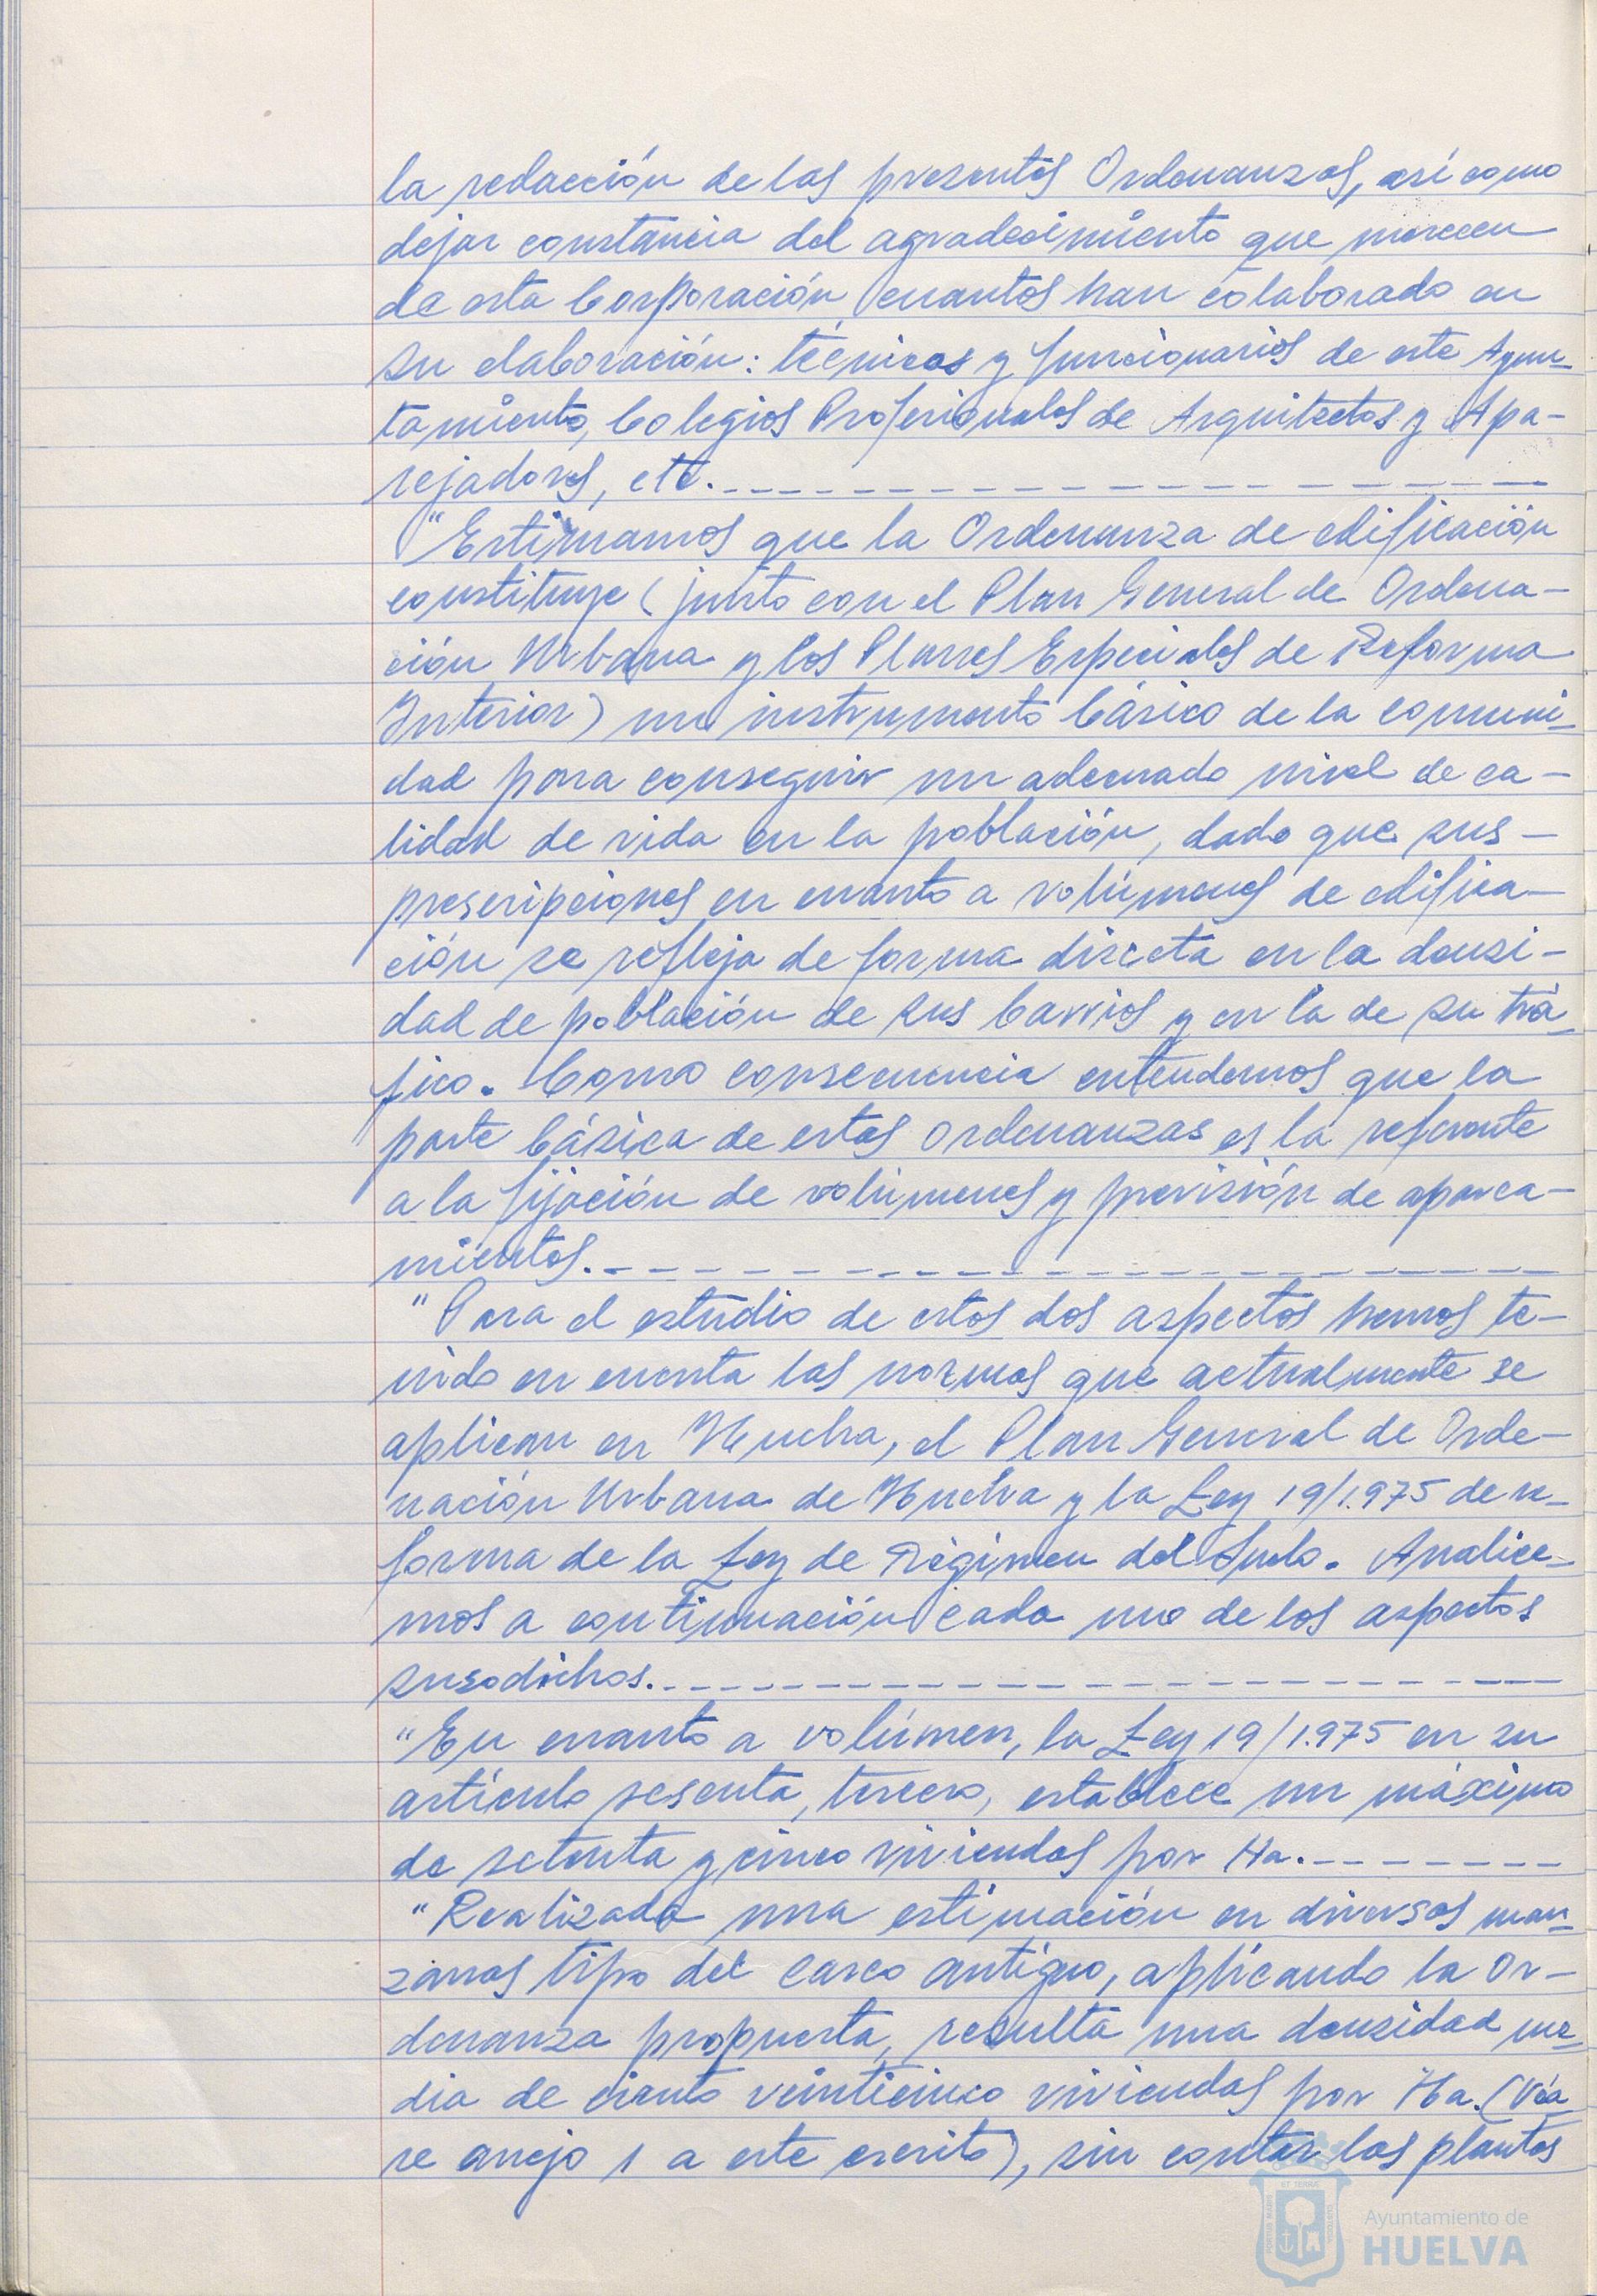 la redacción de las presentes Ordenanzas, así como
dejar constancia del agradecimiento que merecen
de esta Corporación cuantos han colaborado en
su elaboración: técnicos y funcionarios de este Ayun-
tamiento, Colegios Profesionales de Arquitectos y Apa-
rejadores, etc.
"Estimamos que la Ordenanza de edificación
constituye (junto con el Plan General de Ordena-
ción Urbana y los Planes Especiales de Reforma
Interior) un instrumento básico de la comuni-
dad para conseguir un adecuado nivel de ca-
lidad de vida en la población, dado que sus-
prescripciones en cuanto a volúmenes de edifica-
ción se refleja de forma directa en la densi-
dad de población de sus barrios y en la de su trá-
fico. Como consecuencia entendemos que la
parte básica de estas Ordenanzas es la referente
a la fijación de volúmenes y previsión de aparca-
mientos.
"Para el estudio de estos dos aspectos hemos te-
nido en cuenta las normas que actualmente se
aplican en Huelva, el Plan General de Orde-
nación Urbana de Huelva y la Ley 19/1.975 de re-
forma de la Ley de Régimen del Suelo. Analice-
mos a continuación cada uno de los aspectos
susodichos.
"En cuanto a volúmen, la Ley 19/1.975 en su
artículo sesenta, tercero, establece un máximo
de setenta y cinco viviendas por Ha.
"Realizada una estimación en diversas man-
zanas tipo del casco antiguo, aplicando la Or-
denanza propuesta, resulta una densidad me-
dia de ciento veinticinco viviendas por Ha. (Véa
se anejo 1 a este escrito), sin contar las plantas
Ayuntamiento de
HUELVA